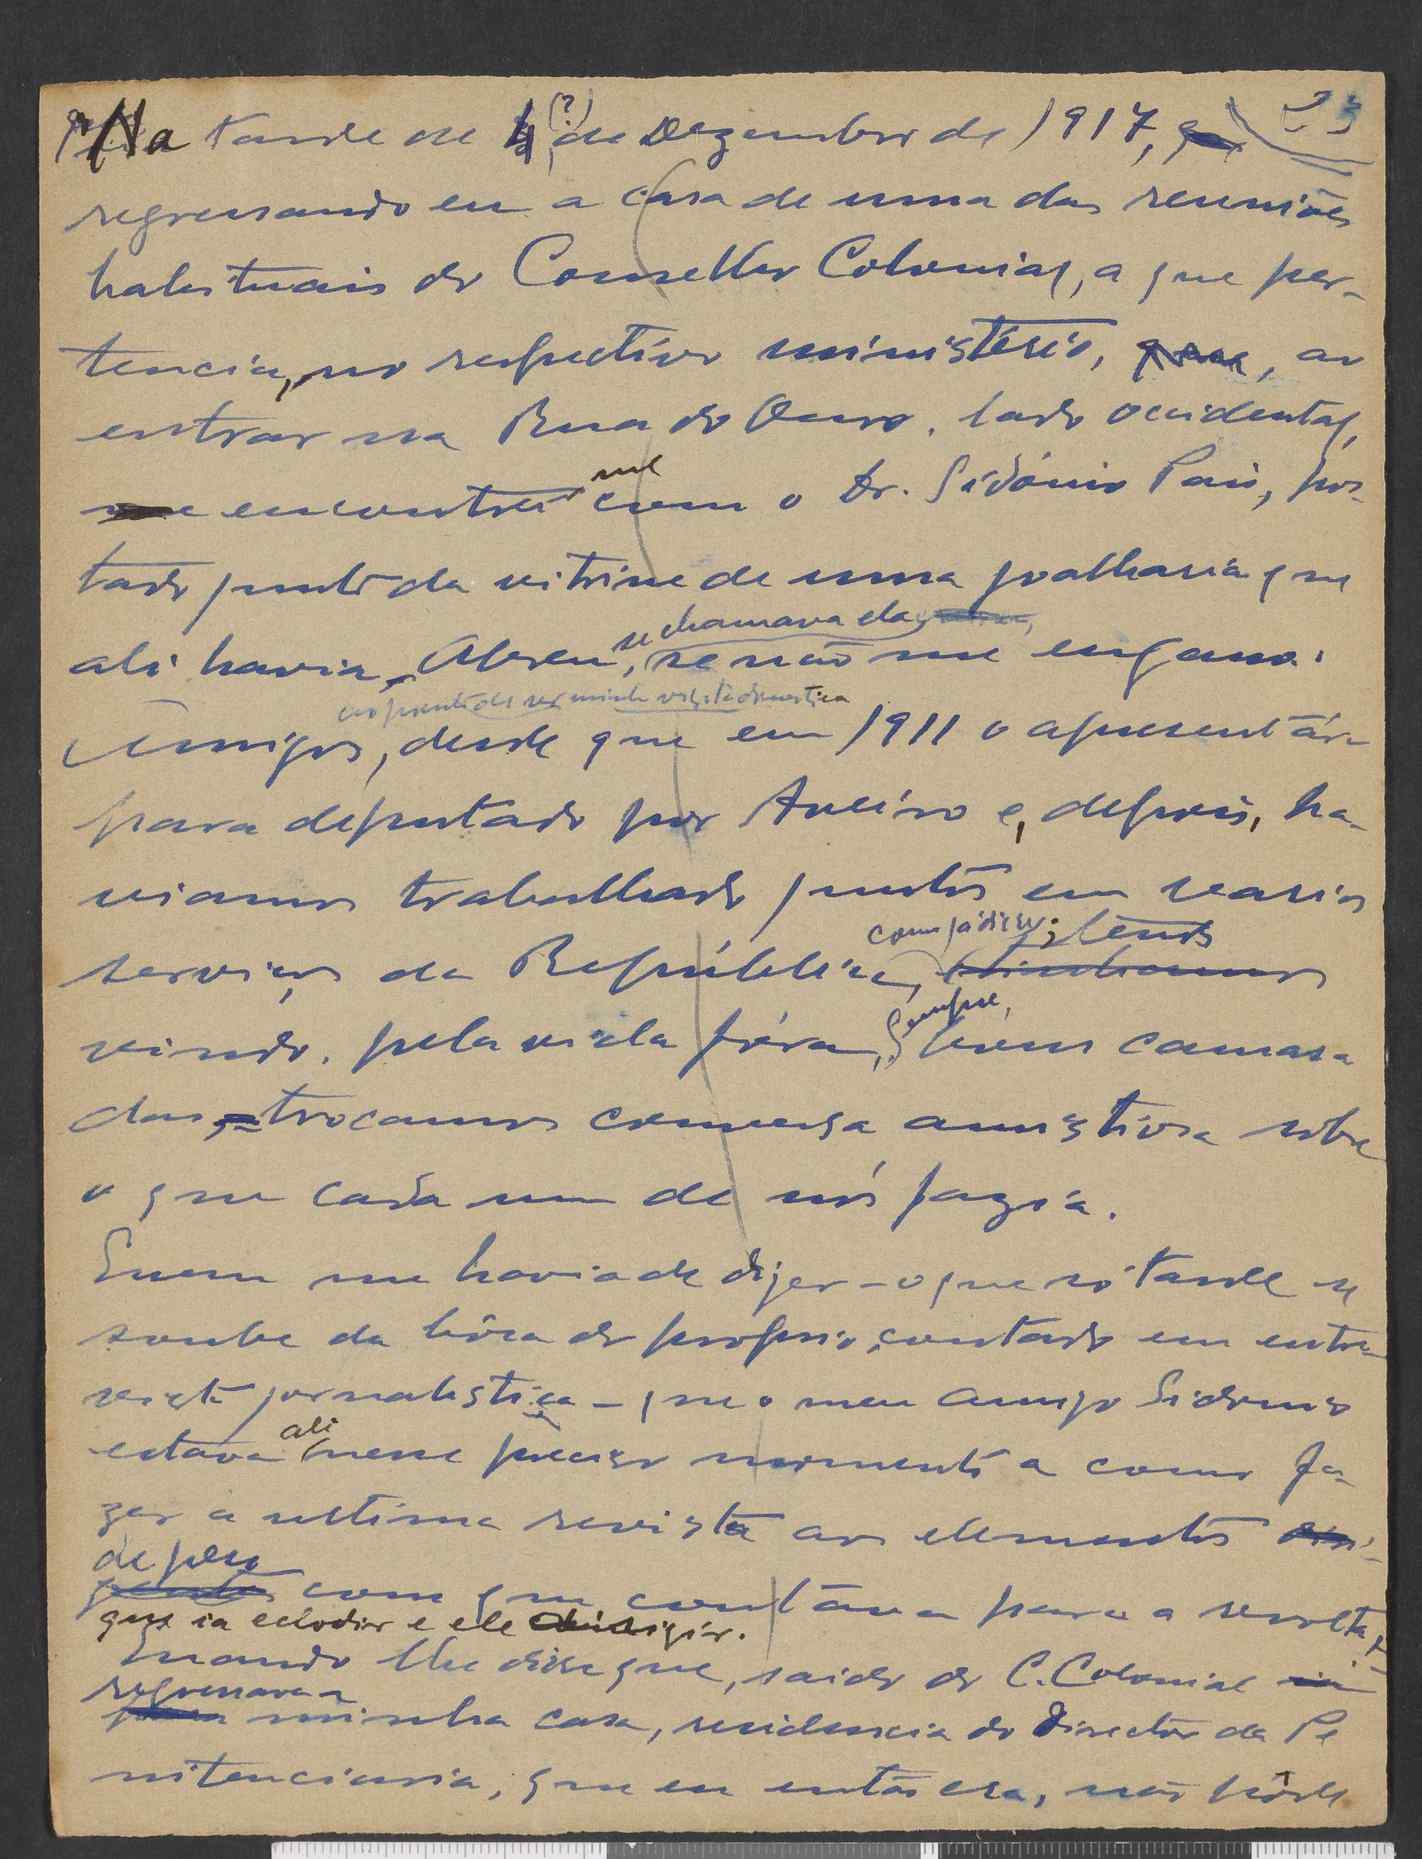 23
Na tarde de 4 (?) de Dezembro de 1917,
regressando eu a casa de uma das reuniões
habituais do Conselho Colonial, a que per-
tencia, no respectivo ministério, ao
entrar na Rua do Ouro, lado occidental,
encontrei me com o Dr. Sidónio Pais, pos-
tado junto da vitrine de uma joalharia que
se chamava ela,
ali havia, Abreu, se não me engano.
visita domestica
Amigos, desde que em 1911 o apresentára
para deputado por Aveiro e, depois, ha-
viamos trabalhado juntos em varios
como já disse; tendo
serviços da República,
Sempre,
vindo, pela vida fóra, bons camara
das, trocamos conversa amistosa sobre
o que cada um de nós fazia.
Quem me havia de dizer - o que só tarde se
soube da bôca do proprio, contado em entre-
vista jornalistica - que o meu amigo Sidonio
estava ali nesse preciso momento a como fa-
zer a ultima revista aos elementos
de peso
com que contava para a revolta
que ia eclodir e ele dirigir.
Quando lhe disse que, saido do C. Colonial
regressava a
minha casa, residencia do Director da Pe
nitenciaria, que eu então era, não pôde